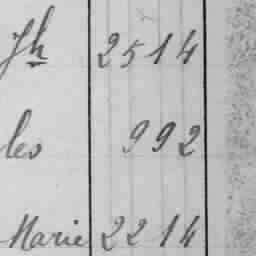 Jh 2514
les 992
Marie 2214